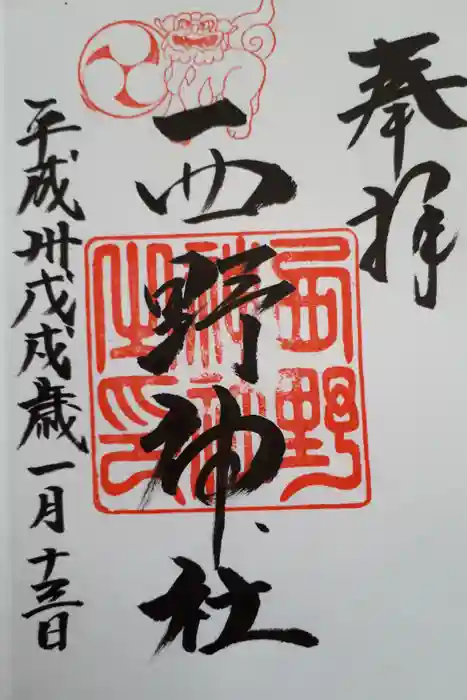 奉拝
西野神社
平成卅戊戌歳一月十三日
西野
神社神
之印